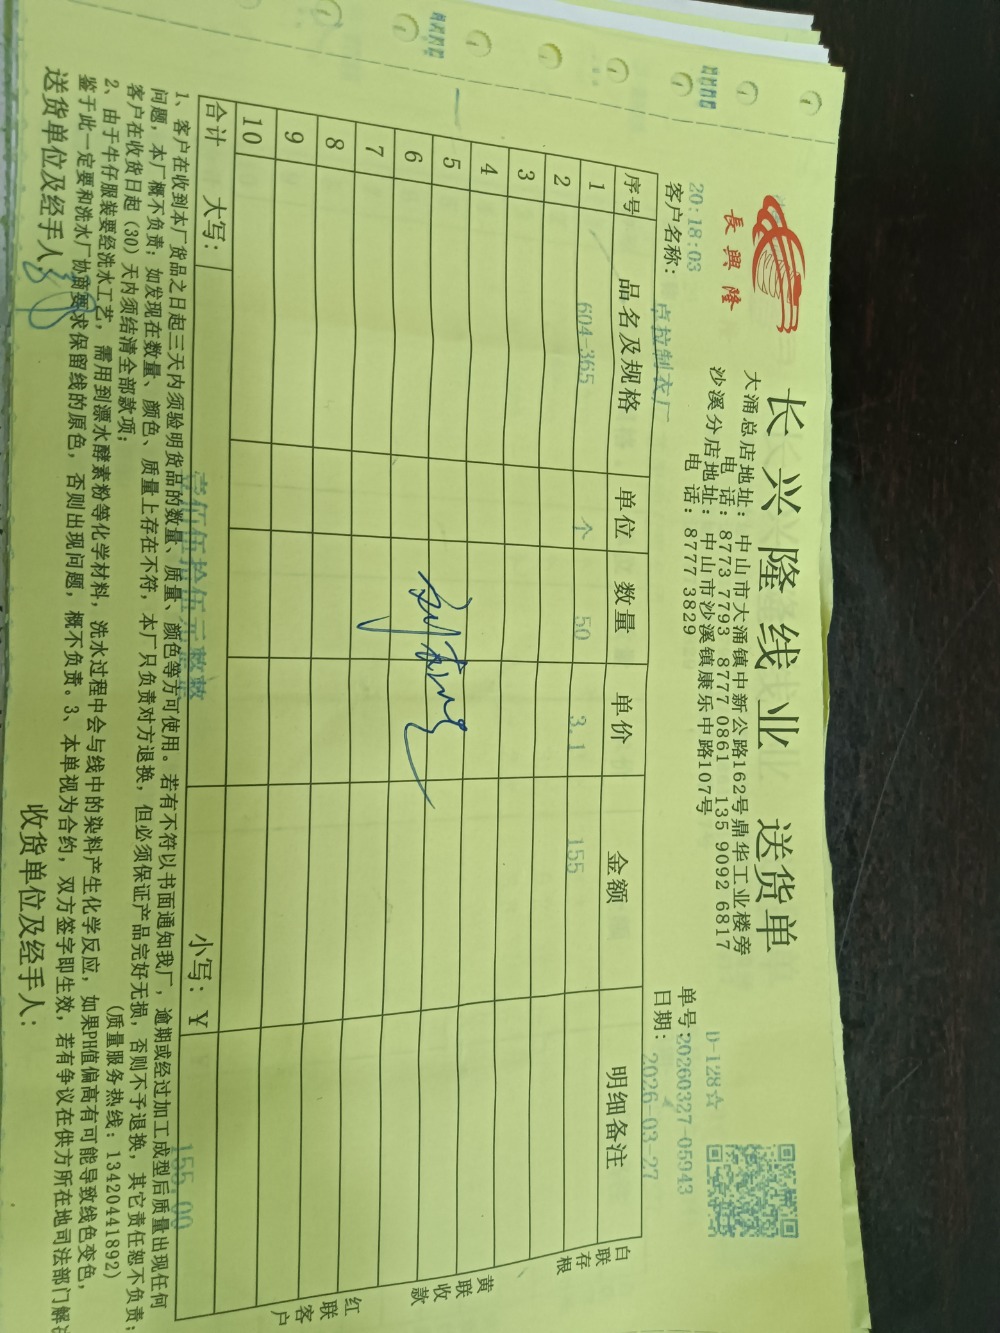 長興隆
长兴隆线业 送货单
大涌总店地址：中山市大涌镇中新公路162号鼎华工业楼旁
电 话：8773 7793 8777 0861 135 9092 6817
沙溪分店地址：中山市沙溪镇康乐中路107号
电 话：8777 3829
D-128☆
20:18:03
单号:20260327-05943
客户名称： 卓拉制衣厂
日期： 2026-03-27
序号 品名及规格 单位 数量 单价 金额 明细备注
1 604-365 个 50 3.1 155
2
3
4
5
6
7
8
9
10
合计 大写： 壹佰伍拾伍元整 小写：￥ 155.00
白联存根
黄联收款
红联客户
1、客户在收到本厂货品之日起三天内须验明货品的数量、质量、颜色等方可使用。若有不符以书面通知我厂，逾期或经过加工成型后质量出现任何
问题，本厂概不负责；如发现在数量、颜色、质量上存在不符，本厂只负责对方退换，但必须保证产品完好无损，否则不予退换，其它责任恕不负责；
客户在收货日起（30）天内须结清全部款项；
(质量服务热线：13420441892)
2、由于牛仔服装要经洗水工艺，需用到漂水酵素粉等化学材料，洗水过程中会与线中的染料产生化学反应，如果PH值偏高有可能导致线色变色，
鉴于此一定要和洗水厂协商要求保留线的原色，否则出现问题，概不负责。3、本单视为合约，双方签字即生效，若有争议在供方所在地司法部门解
送货单位及经手人：
收货单位及经手人：